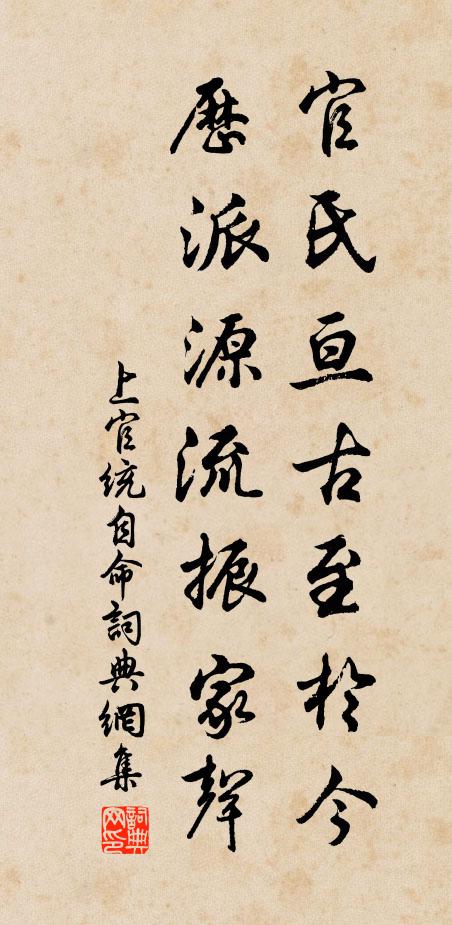 官氏亘古至於今
歷派源流振家聲
上官統自命詞典網集
詞典網印